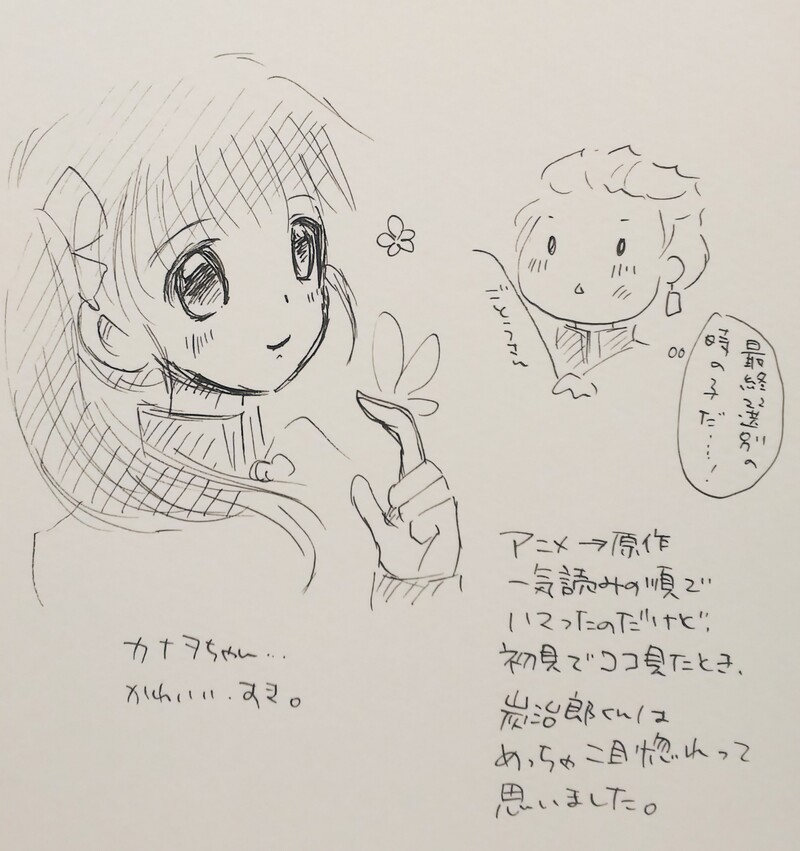 最終選別の
時の子だ……!
カナヲちゃん…
かわいい。すき。
アニメ→原作
一気読みの順で
いってったのだけど、
初見でココ見たとき、
炭治郎くんは
めっちゃ二目惚れって
思いました。